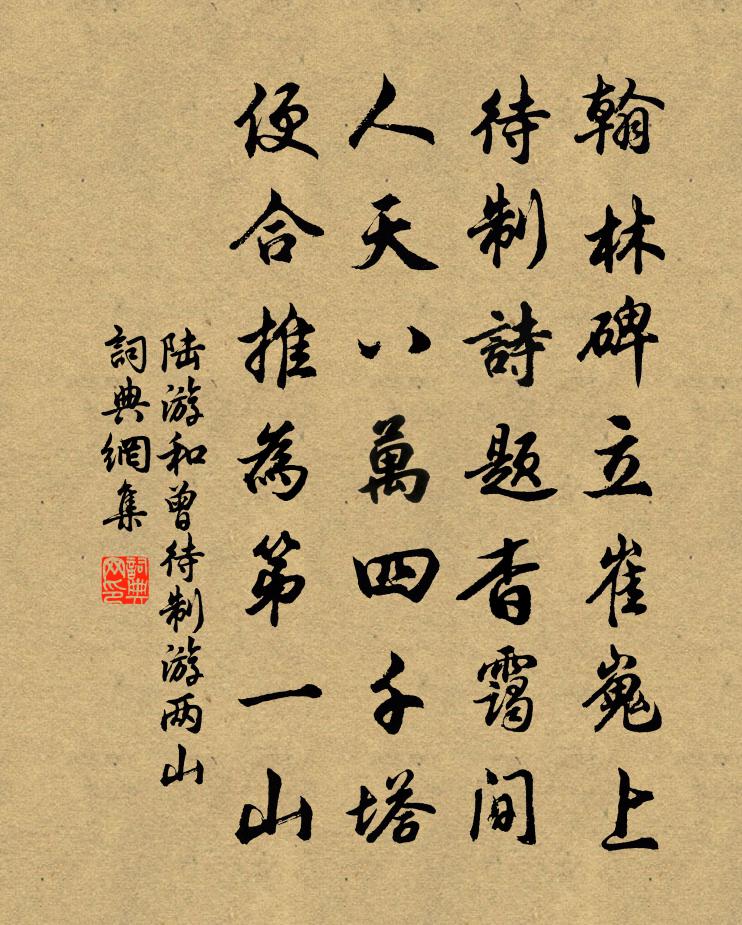 翰林碑立崔嵬上
待制詩題杳靄間
人天八萬四千塔
便合推為第一山
陆游和曾待制游两山
詞典網集
詞典網印